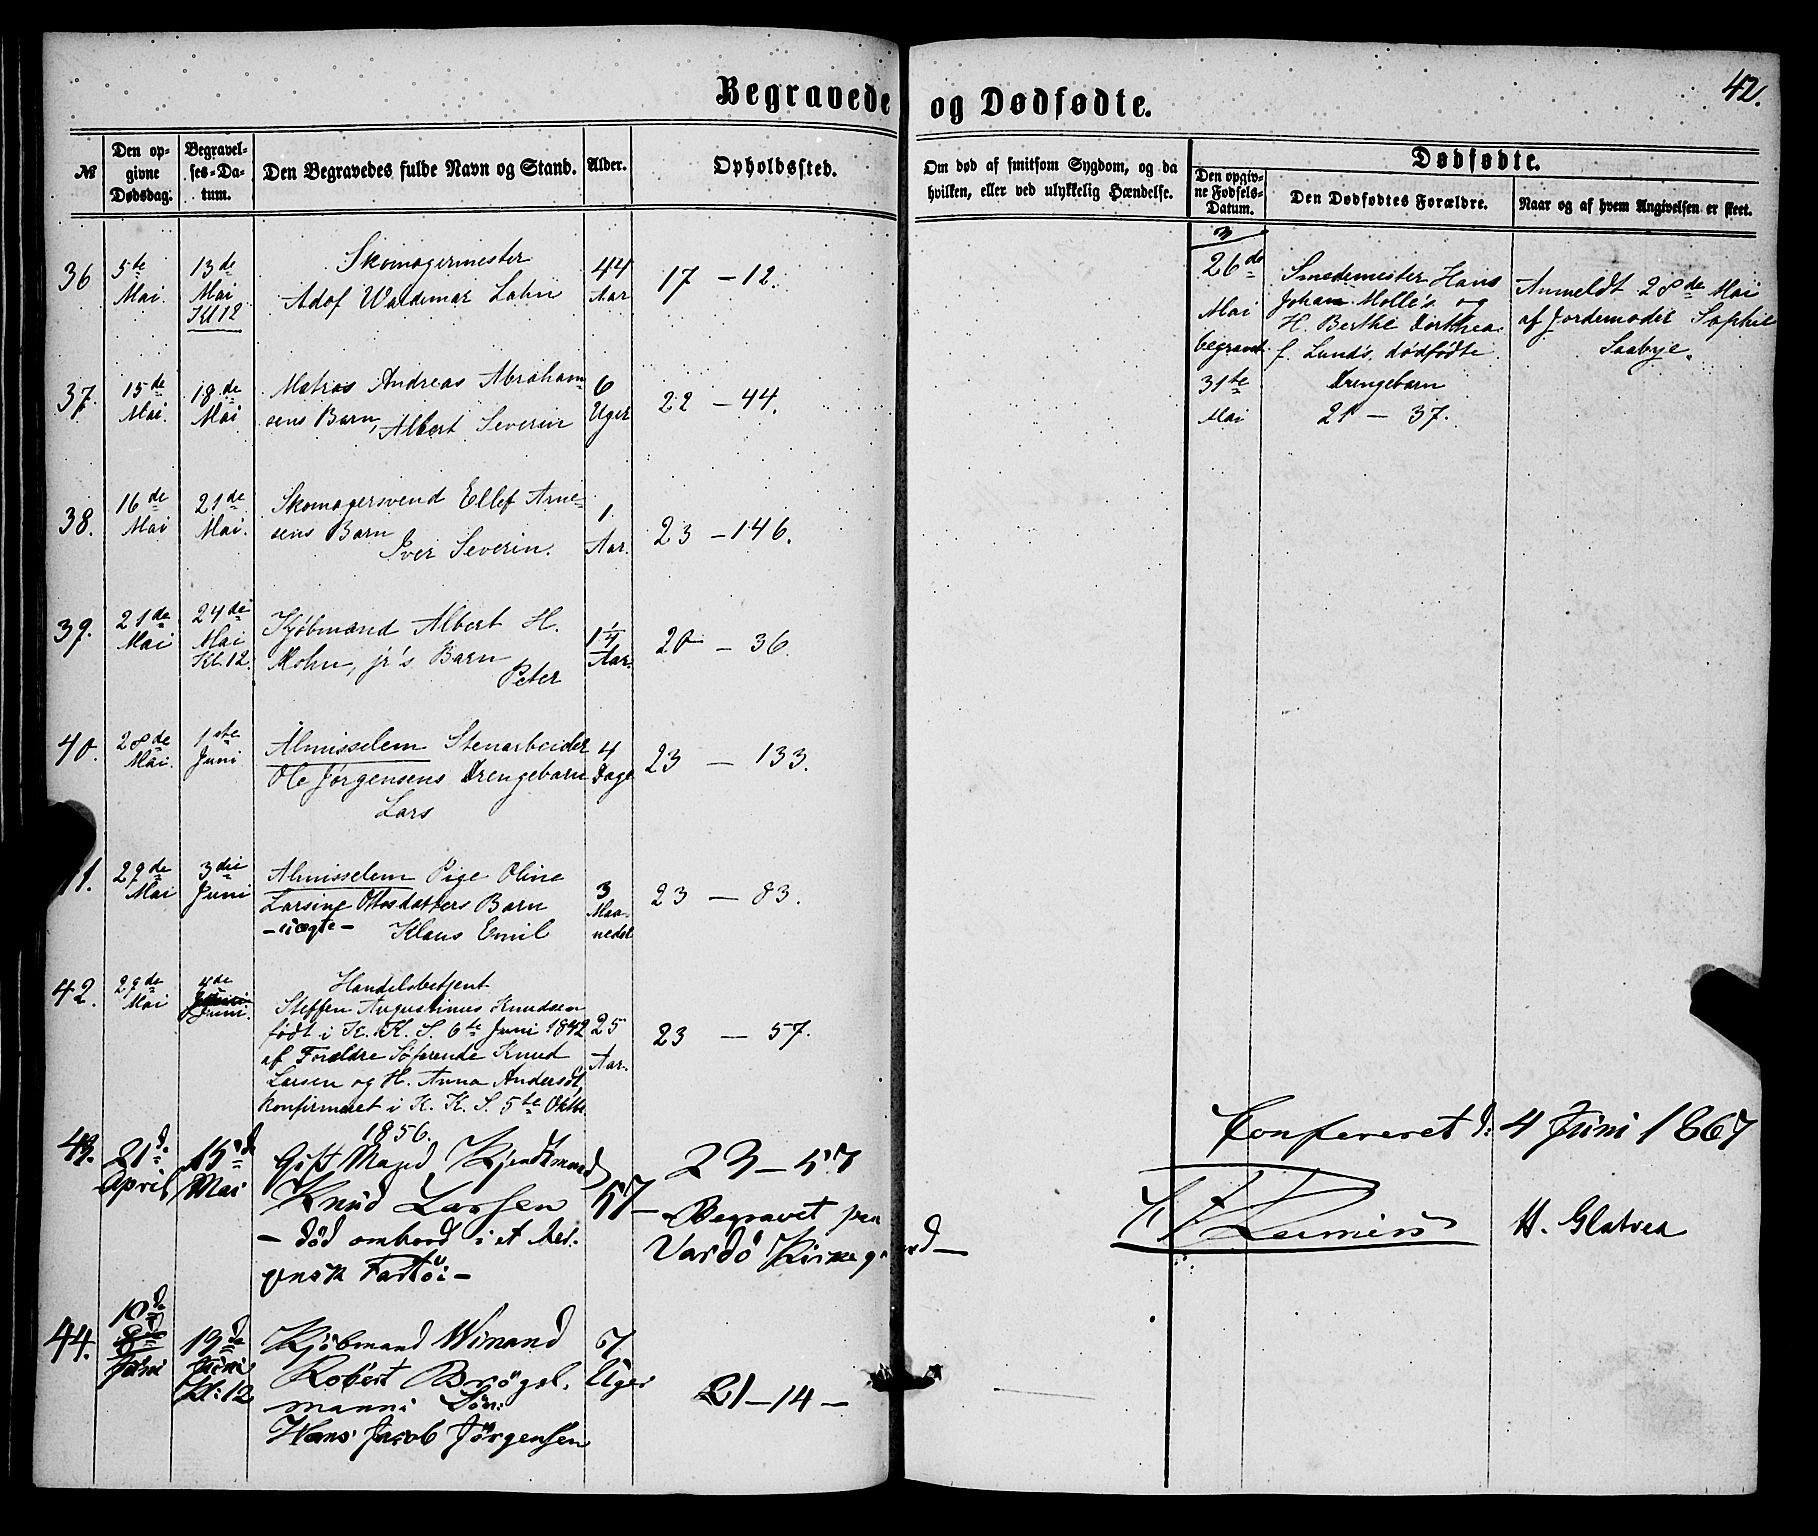 Begravede og Dødfødte.
42.
№
Den op-
givne
Dødsdag.
Begravel-
ses-Da-
tum.
Den Begravedes fulde Navn og Stand.
Alder.
Opholdssted.
Om død af smitsom Sygdom, og da
hvilken, eller ved ulykkelig Hændelse.
Dødfødte.
Den opgiv-
ne Fødsels-
Datum.
Den Dødfødtes Forældre.
Naar og af hvem Angivelsen er skeet.
36
5te
Mai.
13de
Mai
Kl 12
Skomagermester
Adof Waldemar Lahn
44
Aar
17 - 12.
37.
15de
Mai.
18de
Mai
Matros Andreas Abraham-
sens Barn, Albert Severin
6
Uger
22 - 44.
38.
16de
Mai
21de
Mai.
Skomagersvend Ellef Arne-
sens Barn
Iver Severin.
1
Aar.
23 - 146.
39.
21de
Mai
24de
Mai
Kl. 12.
Kjøbmand Albert H.
Mohn, jr's Barn
Peter
1 1/4
Aar.
20 - 36.
40.
28de
Mai.
1ste
Juni
Almisselem Stenarbeider
Ole Jørgensens Drengebarn
Lars
4
Dage
23 - 133.
41.
29de
Mai
3die
Juni
Almisselem Pige Oline
Larsine Ottosdatters Barn
- uægte - Klaus Emil
3
Maa-
neder
23 - 83.
42.
29de
Mai
4de
Juni.
Handelsbetjent
Steffen Augustinus Knudsen
født i K. K. S. 6te Juni 1842
af Forældre Søfarende Knud
Larsen og H. Anna Andersdt,
konfirmeret i K. K. S. 5te Oktbr.
1856.
25
Aar.
23 - 57.
43.
21d.
April
15d
Mai
Gift Mand Kjendtmand
Knud Larsen
- død ombord i et ber-
gensk Fartøi -
57
23 - 57
- Begravet paa
Vardö Kirkegaard -
44.
10d
Juni
13de
Juni
Kl: 12
Kjøbmand Winand
Robert Brögel-
manns Søn:
Hans Jacob Jörgensen
Uger
21 - 14 -
3
26de
Mai
begravet
31te
Mai
Smedemester Hans
Johan Molle's og
H. Berthe Dorthea
f. Lund's. dødfødte
Drengebarn
21 - 37.
Anmeldt 28de Mai
af Jordemoder Sophie
Saabye.
Confereret d: 4 Juni 1867